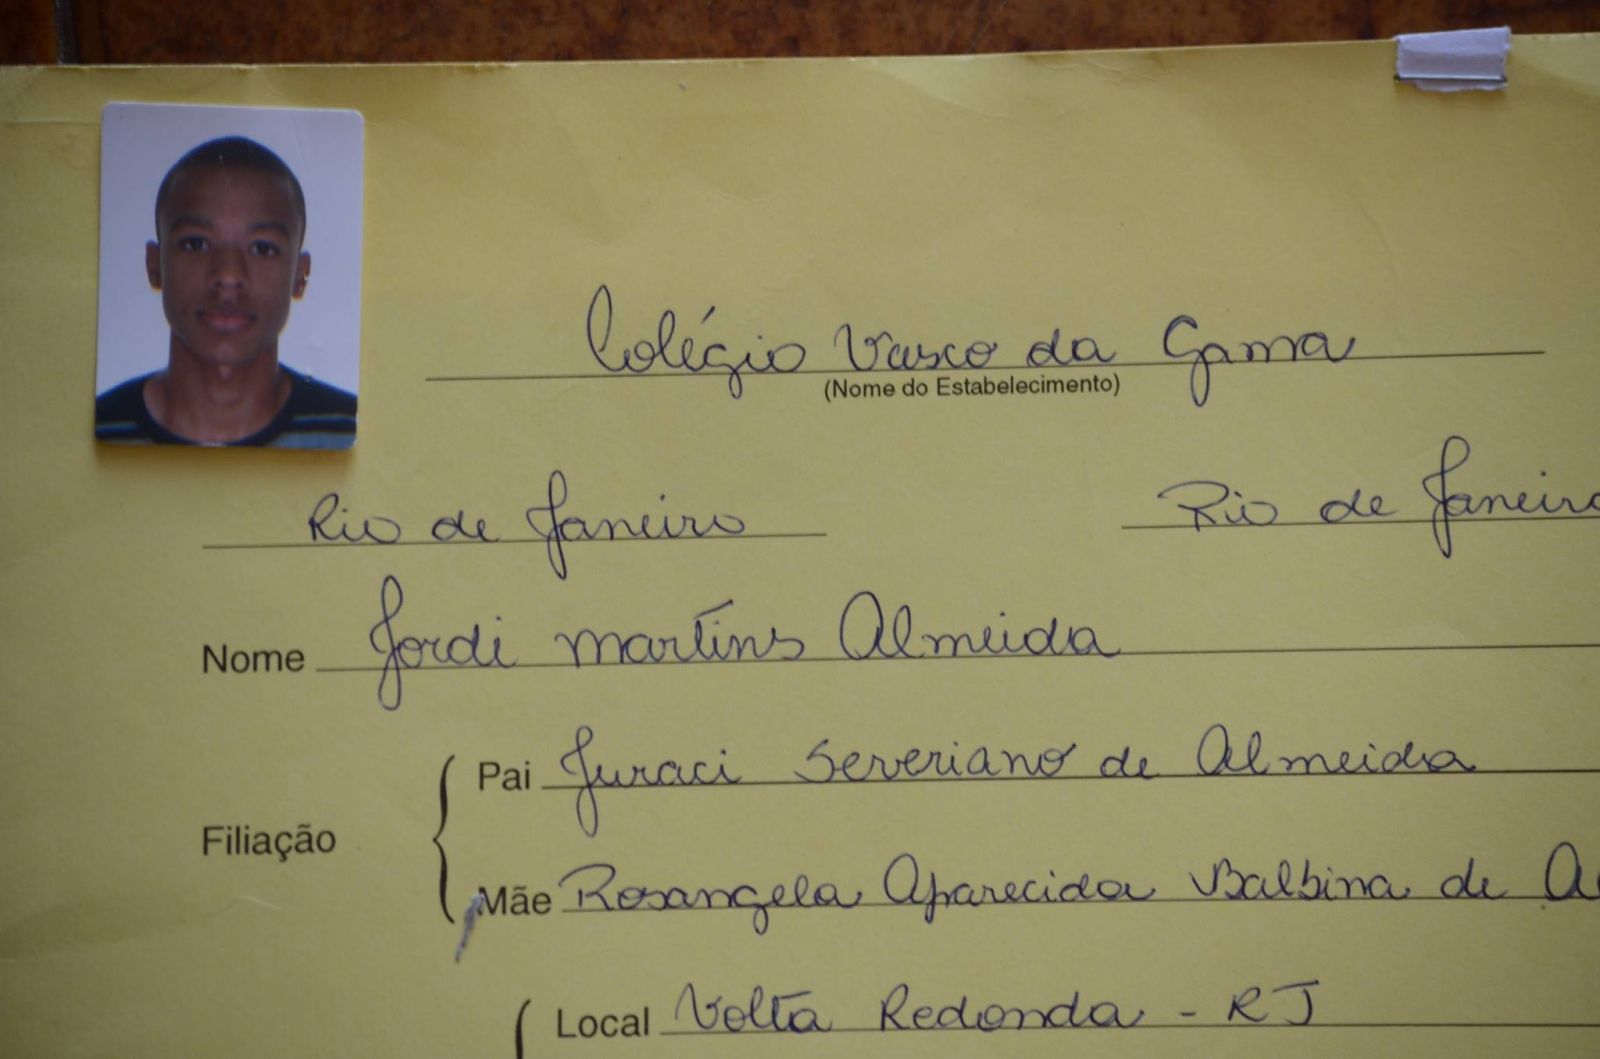 Colégio Vasco da Gama
(Nome do Estabelecimento)
Rio de Janeiro Rio de Janeiro
Nome Jordi Martins Almeida
Pai Juraci Severiano de Almeida
Filiação
Mãe Rosangela Aparecida Balbina de A
Local Volta Redonda - RJ